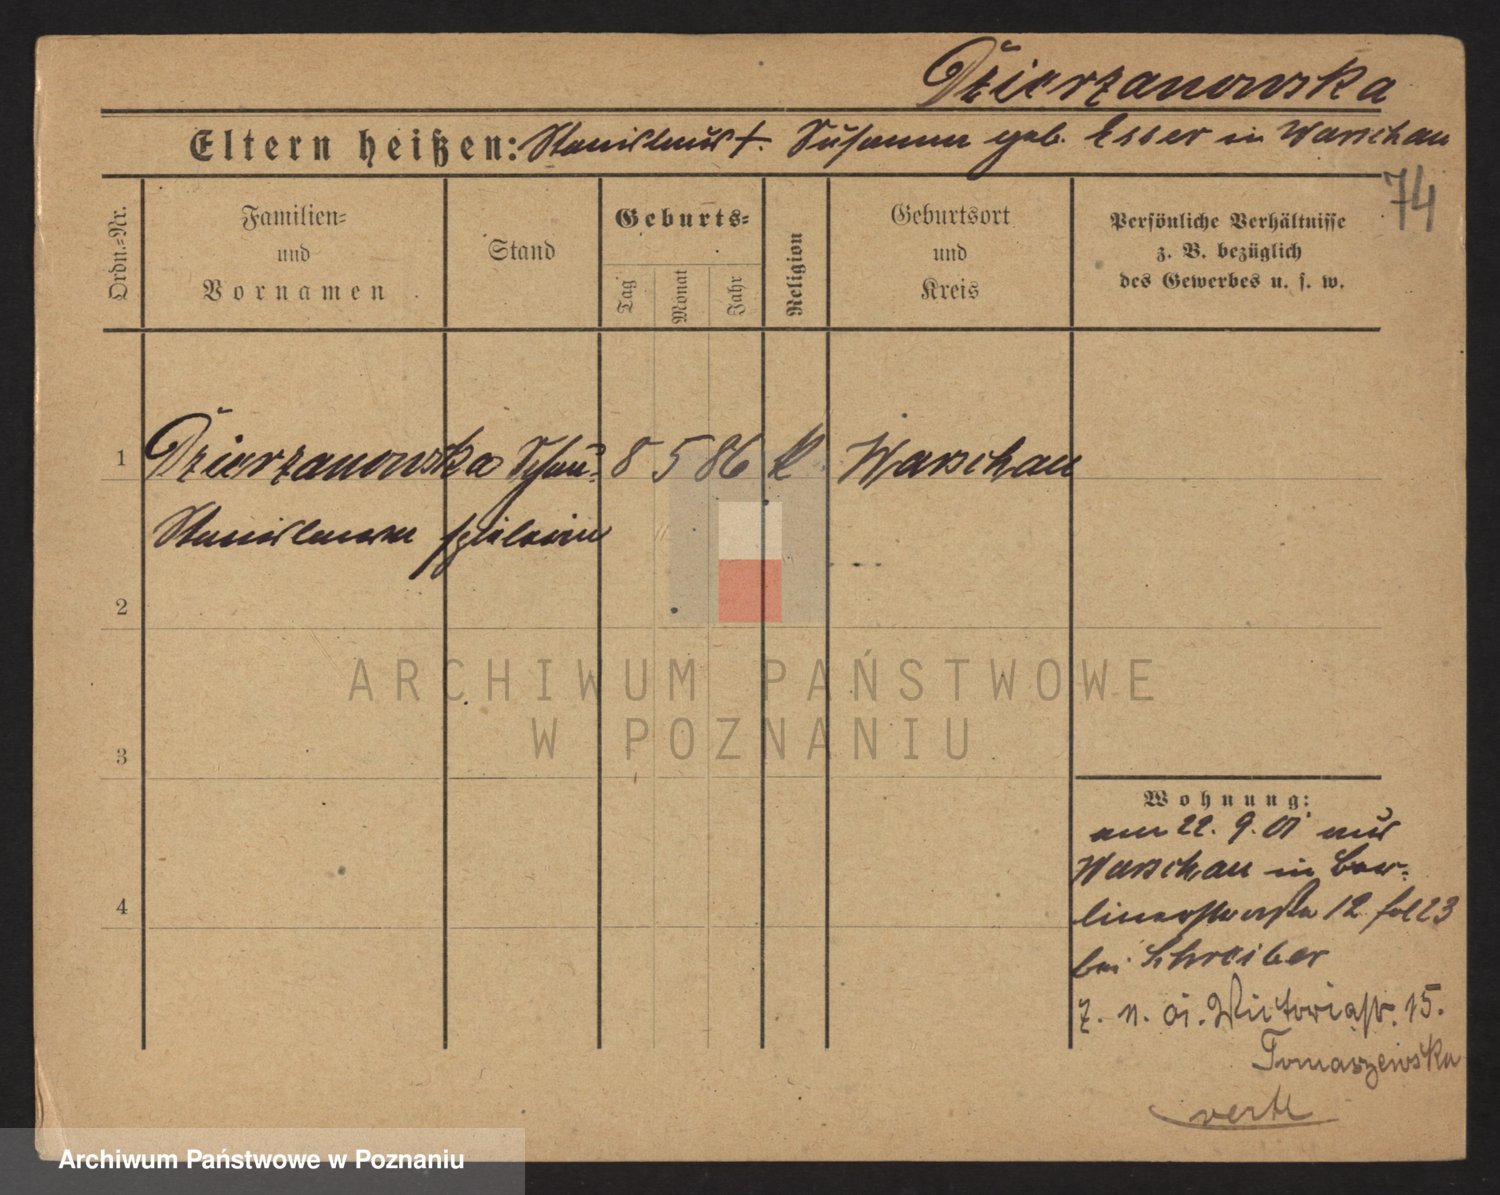 Dzierzanowska
Eltern heißen: Stanislaus †. Susanna geb. Esser in Warschau
74
Ordn.=Nr.
Familien=
und
Vornamen
Stand
Geburts=
Tag
Monat
Jahr
Religion
Geburtsort
und
Kreis
Persönliche Verhältnisse
z. B. bezüglich
des Gewerbes u. s. w.
1 Dzierzanowska Schau- 8 5 86 k Warschau
Stanislawa spielerin
2
3
4
Wohnung:
am 22. 9. 01 aus
Warschau in Ber-
linerstraße 12 fol 23
bei Schreiber
7. 11. 01. Victoriastr. 15.
Tomaszewska
verte
ARCHIWUM PAŃSTWOWE
W POZNANIU
Archiwum Państwowe w Poznaniu